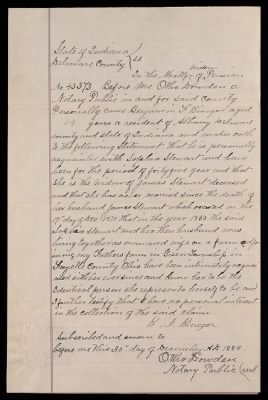 State of Indiana
Delaware County } SS
In the Matter of widow Pension
No 43373 Before Me Otho Dowden a
Notary Public in and for said County
Personally came Benjamin F. aged
49 years a resident of Albany Delaware
County and State of Indiana and made oath
to the following Statement that he is personally
acquainted with Sophia Stewart and have
been for the period of forty four years and that
She is the widow of James Stewart deceased
and that she has not re married since the death of
her husband James Stewart which occured on the
day of Dec 1871 that in the year 1853 the said
Sophia Stewart and her then husband was
living together as man and wife on a farm
my Fathers farm in Green Township in
Fayette County Ohio have been intimately acquain
ted with her ever since and know her to be the
identical person she represents herself to be and
I further testify that I have no personal interest
in the collection of the said claim
B. F.
Subscribed and sworn to
before me this 30th day of December AD 1884
Otho Dowden
Notary Public seal